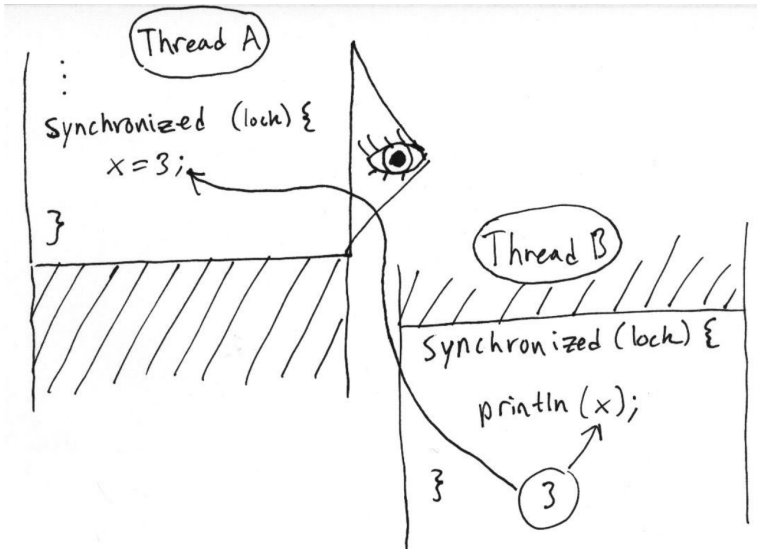 Thread A
⋮
synchronized (lock) {
x = 3;
}
Thread B
synchronized (lock) {
println (x);
}
3